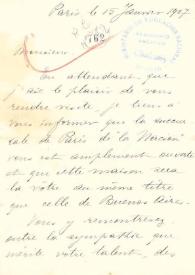 Paris, le 15 Janvier 1907
762
Monsieur,
En attendant que
j'aie le plaisir de vous
rendre visite je tiens à
vous informer que la succur
sale de Paris de "la Nacion"
vous est amplement ouverte
et que cette maison sera
la vôtre au même titre
que celle de Buenos Aires.
Vous y rencontrerez
outre la sympathie que
mérite votre talent, des